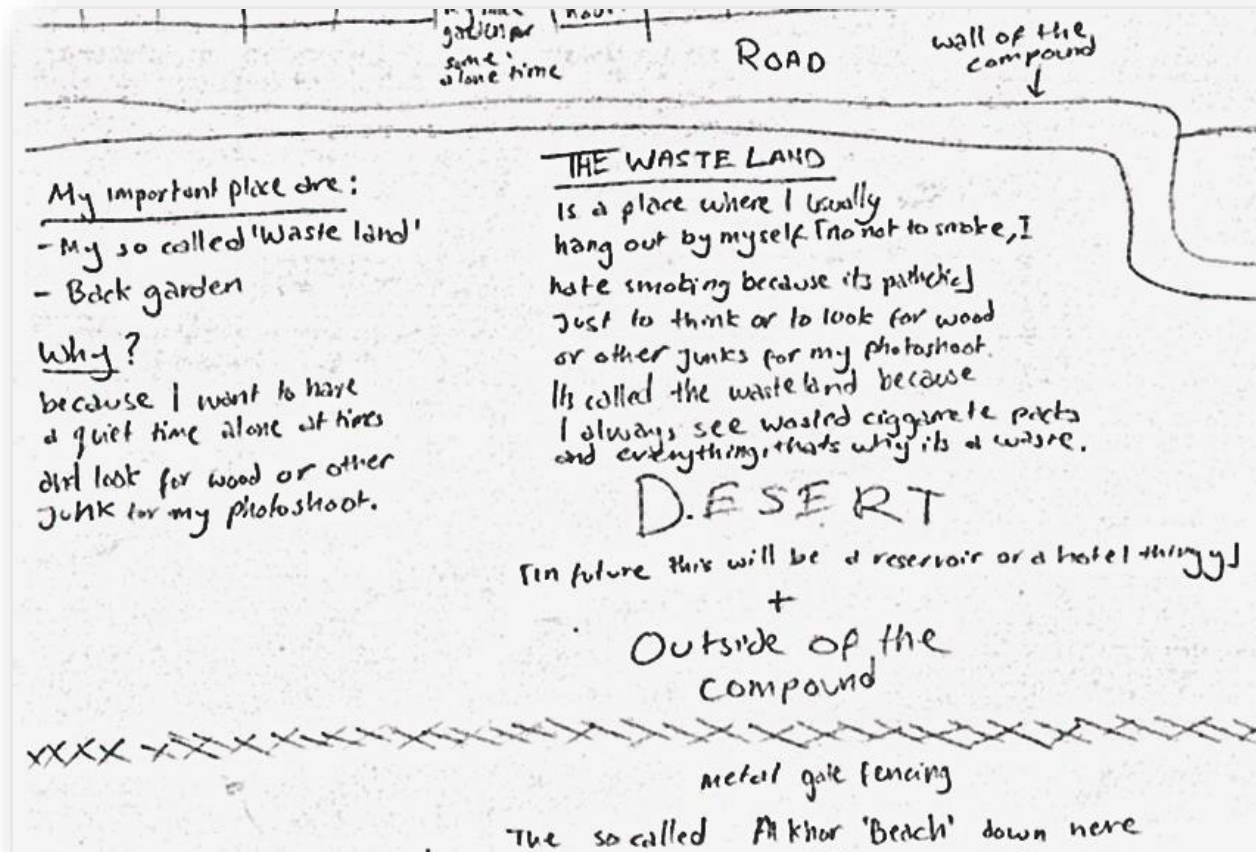 garden for
some
alone time
ROAD
wall of the
compound
My important place are:
- My so called 'Waste land'
- Back garden
Why?
because I want to have
a quiet time alone at times
and look for wood or other
junk for my photoshoot.
THE WASTE LAND
Is a place where I usually
hang out by myself [no not to smoke, I
hate smoking because its pathetic]
Just to think or to look for wood
or other junks for my photoshoot.
Its called the wasteland because
I always see wasted ciggarete packs
and everything, thats why its a waste.
D.ESERT
[in future this will be a reservoir or a hotel thingy]
+
Outside of the
compound
metal gate fencing
The so called Al khor 'Beach' down here